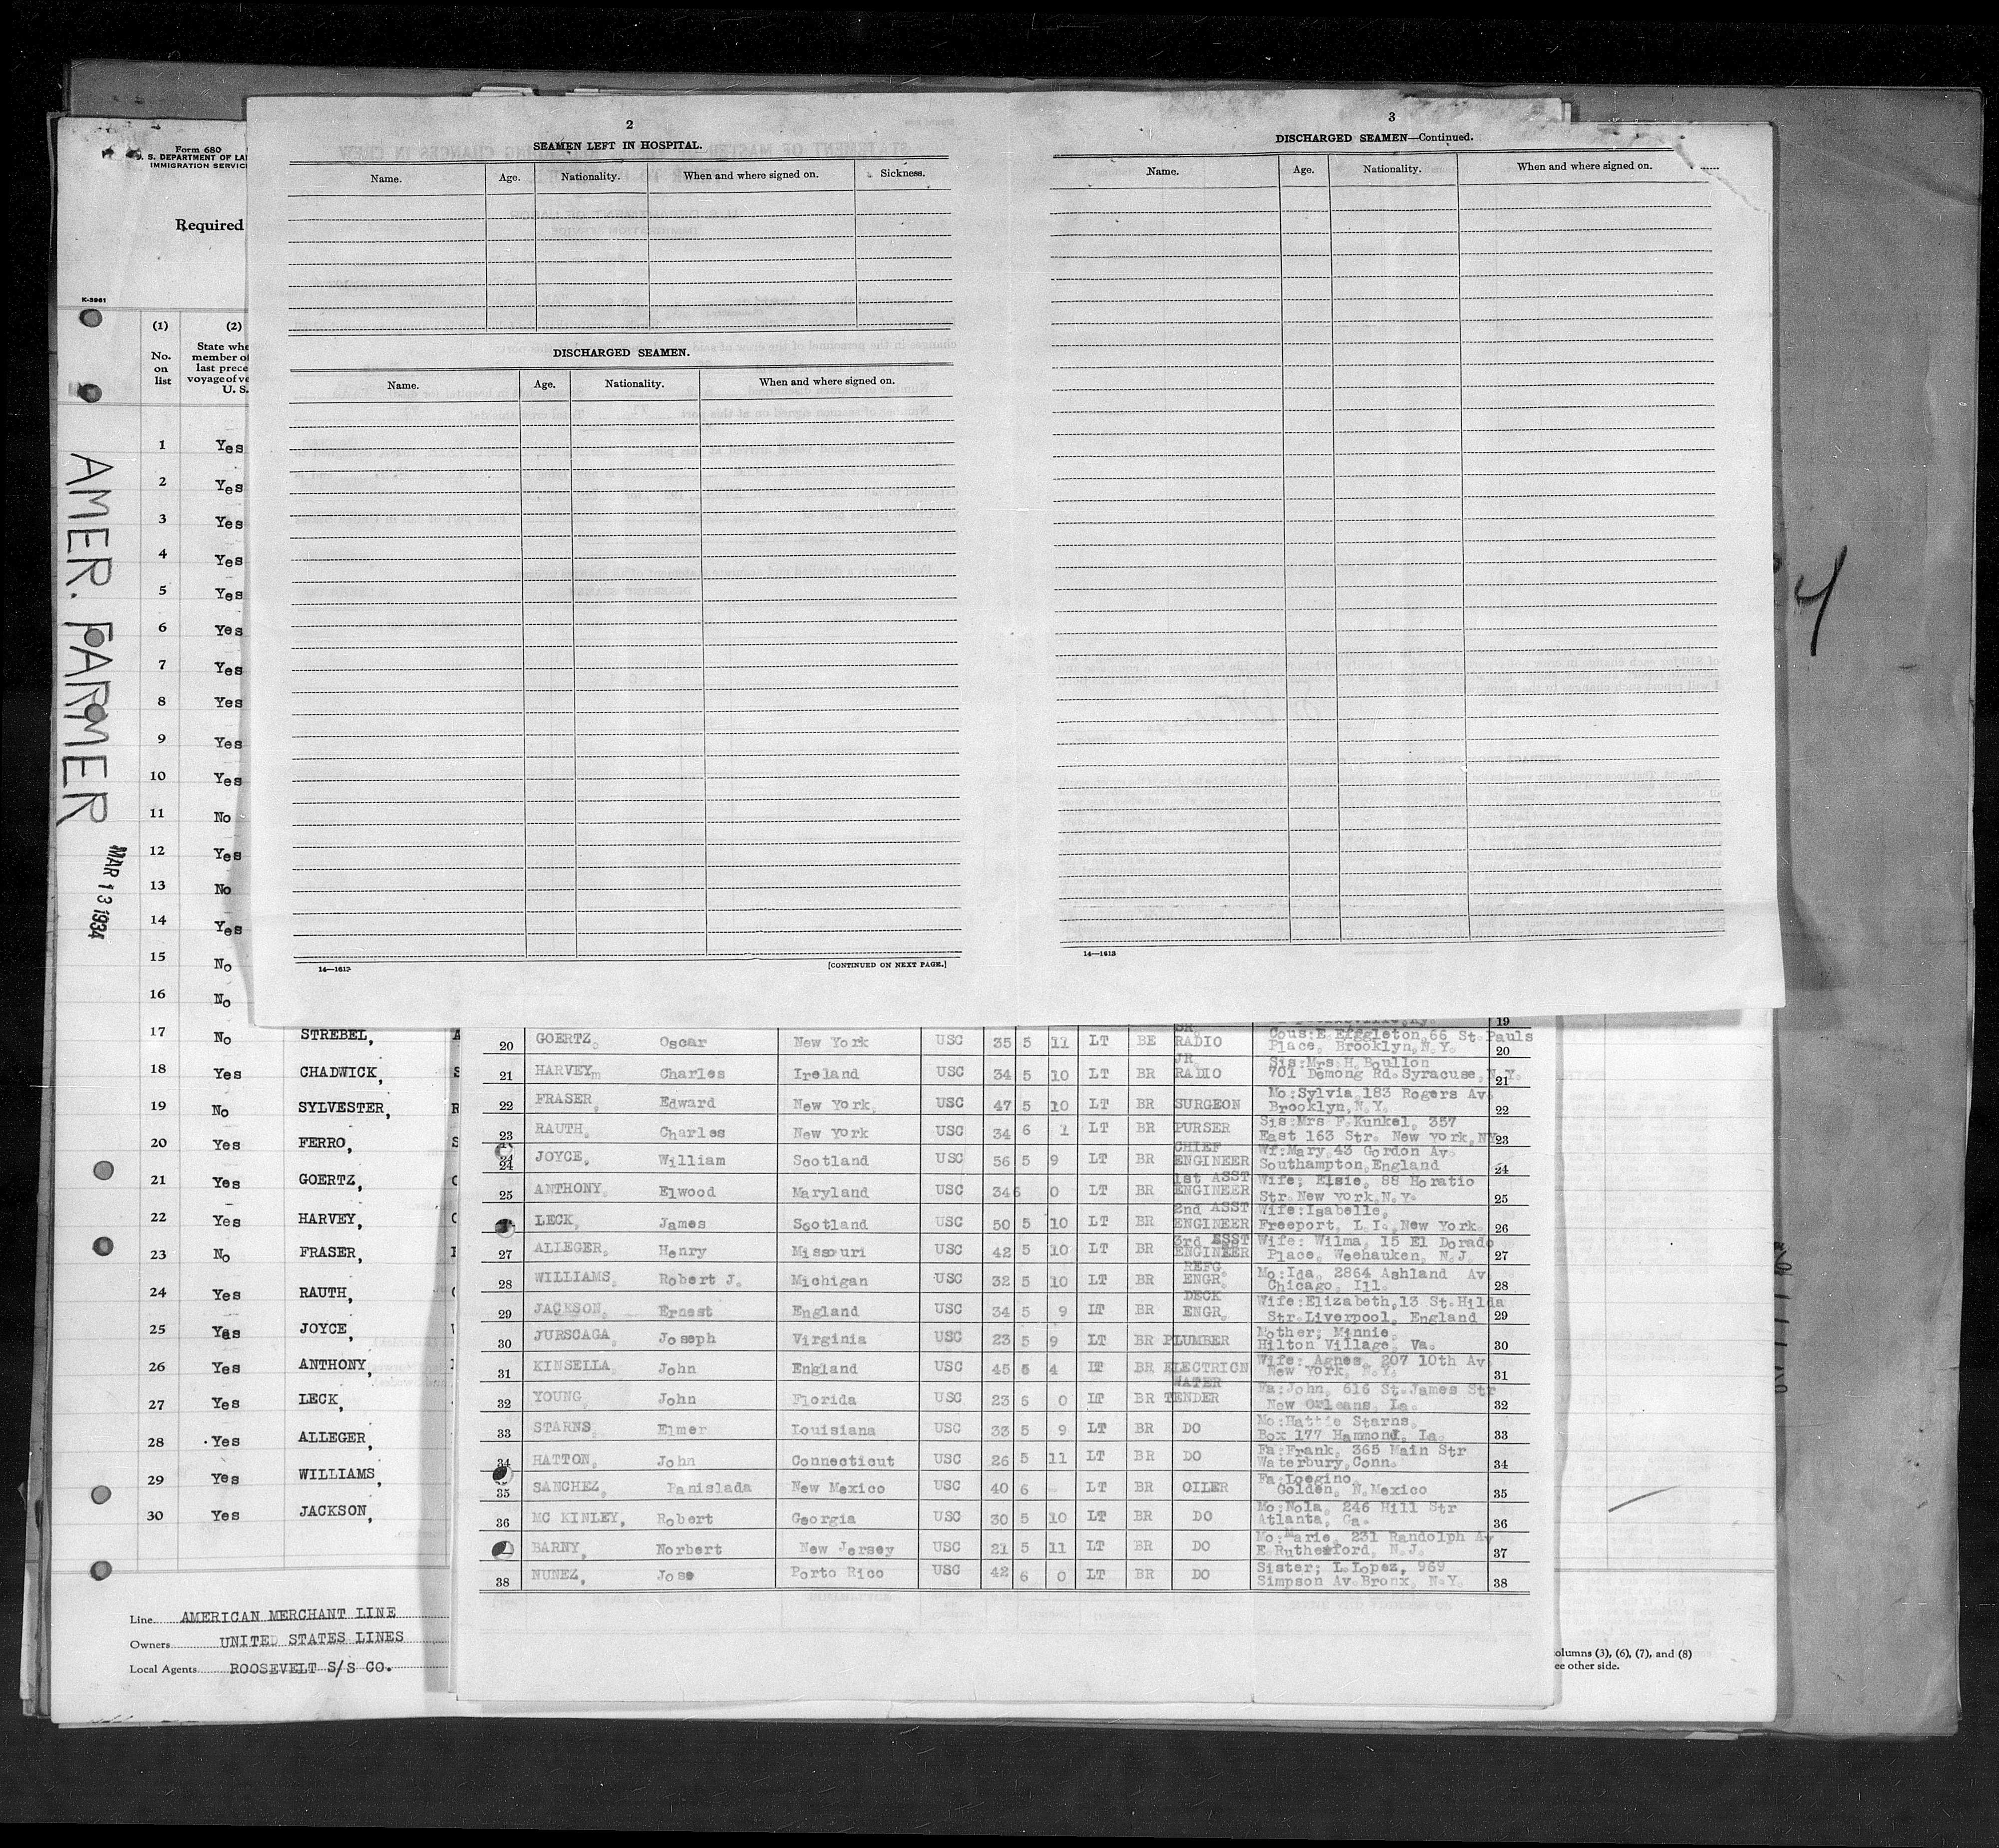 Form 680
U. S. DEPARTMENT OF
IMMIGRATION SERVICE
Required
K-3961
(1) (2)
No. on list
State
member
last
voyage of
U. S.
1 Yes
2 Yes
3 Yes
4 Yes
5 Yes
6 Yes
7 Yes
8 Yes
9 Yes
10 Yes
11 No
12 Yes
13 No
14 Yes
15 No
16 No
17 No STREBEL,
18 Yes CHADWICK,
19 No SYLVESTER,
20 Yes FERRO,
21 Yes GOERTZ,
22 Yes HARVEY,
23 No FRASER,
24 Yes RAUTH,
25 Yes JOYCE,
26 Yes ANTHONY,
27 Yes LECK,
28 Yes ALLEGER,
29 Yes WILLIAMS,
30 Yes JACKSON,
Line AMERICAN MERCHANT LINE
Owners UNITED STATES LINES
Local Agents ROOSEVELT S/S CO.
AMER. FARMER
MAR 13 1934
2
SEAMEN LEFT IN HOSPITAL.
Name. Age. Nationality. When and where signed on. Sickness.
DISCHARGED SEAMEN.
Name. Age. Nationality. When and where signed on.
14—1613 [CONTINUED ON NEXT PAGE.]
3
DISCHARGED SEAMEN—Continued.
Name. Age. Nationality. When and where signed on.
14—1613
19
20 GOERTZ, Oscar New York USC 35 5 11 LT BE SR. RADIO Cous:E. Eggleton,66 St.Pauls Place, Brooklyn,N.Y. 20
21 HARVEYm Charles Ireland USC 34 5 10 LT BR JR. RADIO Sis:Mrs H. Boullon 701 Demong Rd.Syracuse,N.Y. 21
22 FRASER, Edward New York, USC 47 5 10 LT BR SURGEON Mo:Sylvia,183 Rogers Av. Brooklyn,N.Y. 22
23 RAUTH, Charles New York USC 34 6 1 LT BR PURSER Sis:Mrs F.Kunkel, 357 East 163 Str. New York,NY 23
24 JOYCE, William Scotland USC 56 5 9 LT BR CHIEF ENGINEER Wf:Mary,43 Gordon Av. Southampton,England 24
25 ANTHONY, Elwood Maryland USC 34 6 0 LT BR 1st ASST ENGINEER Wife; Elsie, 88 Horatio Str.New York,N.Y. 25
LECK, James Scotland USC 50 5 10 LT BR 2nd ASST ENGINEER Wife:Isabelle, Freeport, L.I. New York. 26
27 ALLEGER, Henry Missouri USC 42 5 10 LT BR 3rd ASST ENGINEER Wife: Wilma, 15 El Dorado Place, Weehauken, N.J. 27
28 WILLIAMS, Robert J. Michigan USC 32 5 10 LT BR REFG. ENGR. Mo:Ida, 2864 Ashland Av Chicago, Ill. 28
29 JACKSON, Ernest England USC 34 5 9 LT BR DECK ENGR. Wife:Elizabeth,13 St.Hilda Str.Liverpool, England 29
30 JURSCAGA, Joseph Virginia USC 23 5 9 LT BR PLUMBER Mother; Minnie, Hilton Village, Va. 30
31 KINSELLA, John England USC 45 5 4 LT BR ELECTRICN Wife: Agnes, 207 10th Av. New York, N.Y. 31
32 YOUNG, John Florida USC 23 6 0 LT BR WATER TENDER Fa:John, 616 St.James Str New Orleans, La. 32
33 STARNS, Elmer Louisiana USC 33 5 9 LT BR DO Mo:Hattie Starns, Box 177 Hammond, La. 33
34 HATTON, John Connecticut USC 26 5 11 LT BR DO Fa:Frank, 365 Main Str Waterbury,Conn. 34
35 SANCHEZ, Panislada New Mexico USC 40 6 - LT BR OILER Fa:Loegino, Golden, N.Mexico 35
36 MC KINLEY, Robert Georgia USC 30 5 10 LT BR DO Mo:Nola, 246 Hill Str Atlanta, Ga. 36
BARNY, Norbert New Jersey USC 21 5 11 LT BR DO Mo:Marie, 231 Randolph Av E.Rutherford, N.J. 37
38 NUNEZ, Jose Porto Rico USC 42 6 0 LT BR DO Sister; L.Lopez, 969 Simpson Av.Bronx, N.Y. 38
columns (3), (6), (7), and (8)
see other side.